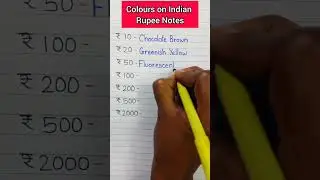 Colours on Indian
Rupee Notes
₹ 10 - Chocolate Brown
₹ 20 - Greenish Yellow
₹ 50 - Fluorescent
₹ 100 -
₹ 200 -
₹ 500 -
₹ 2000 -